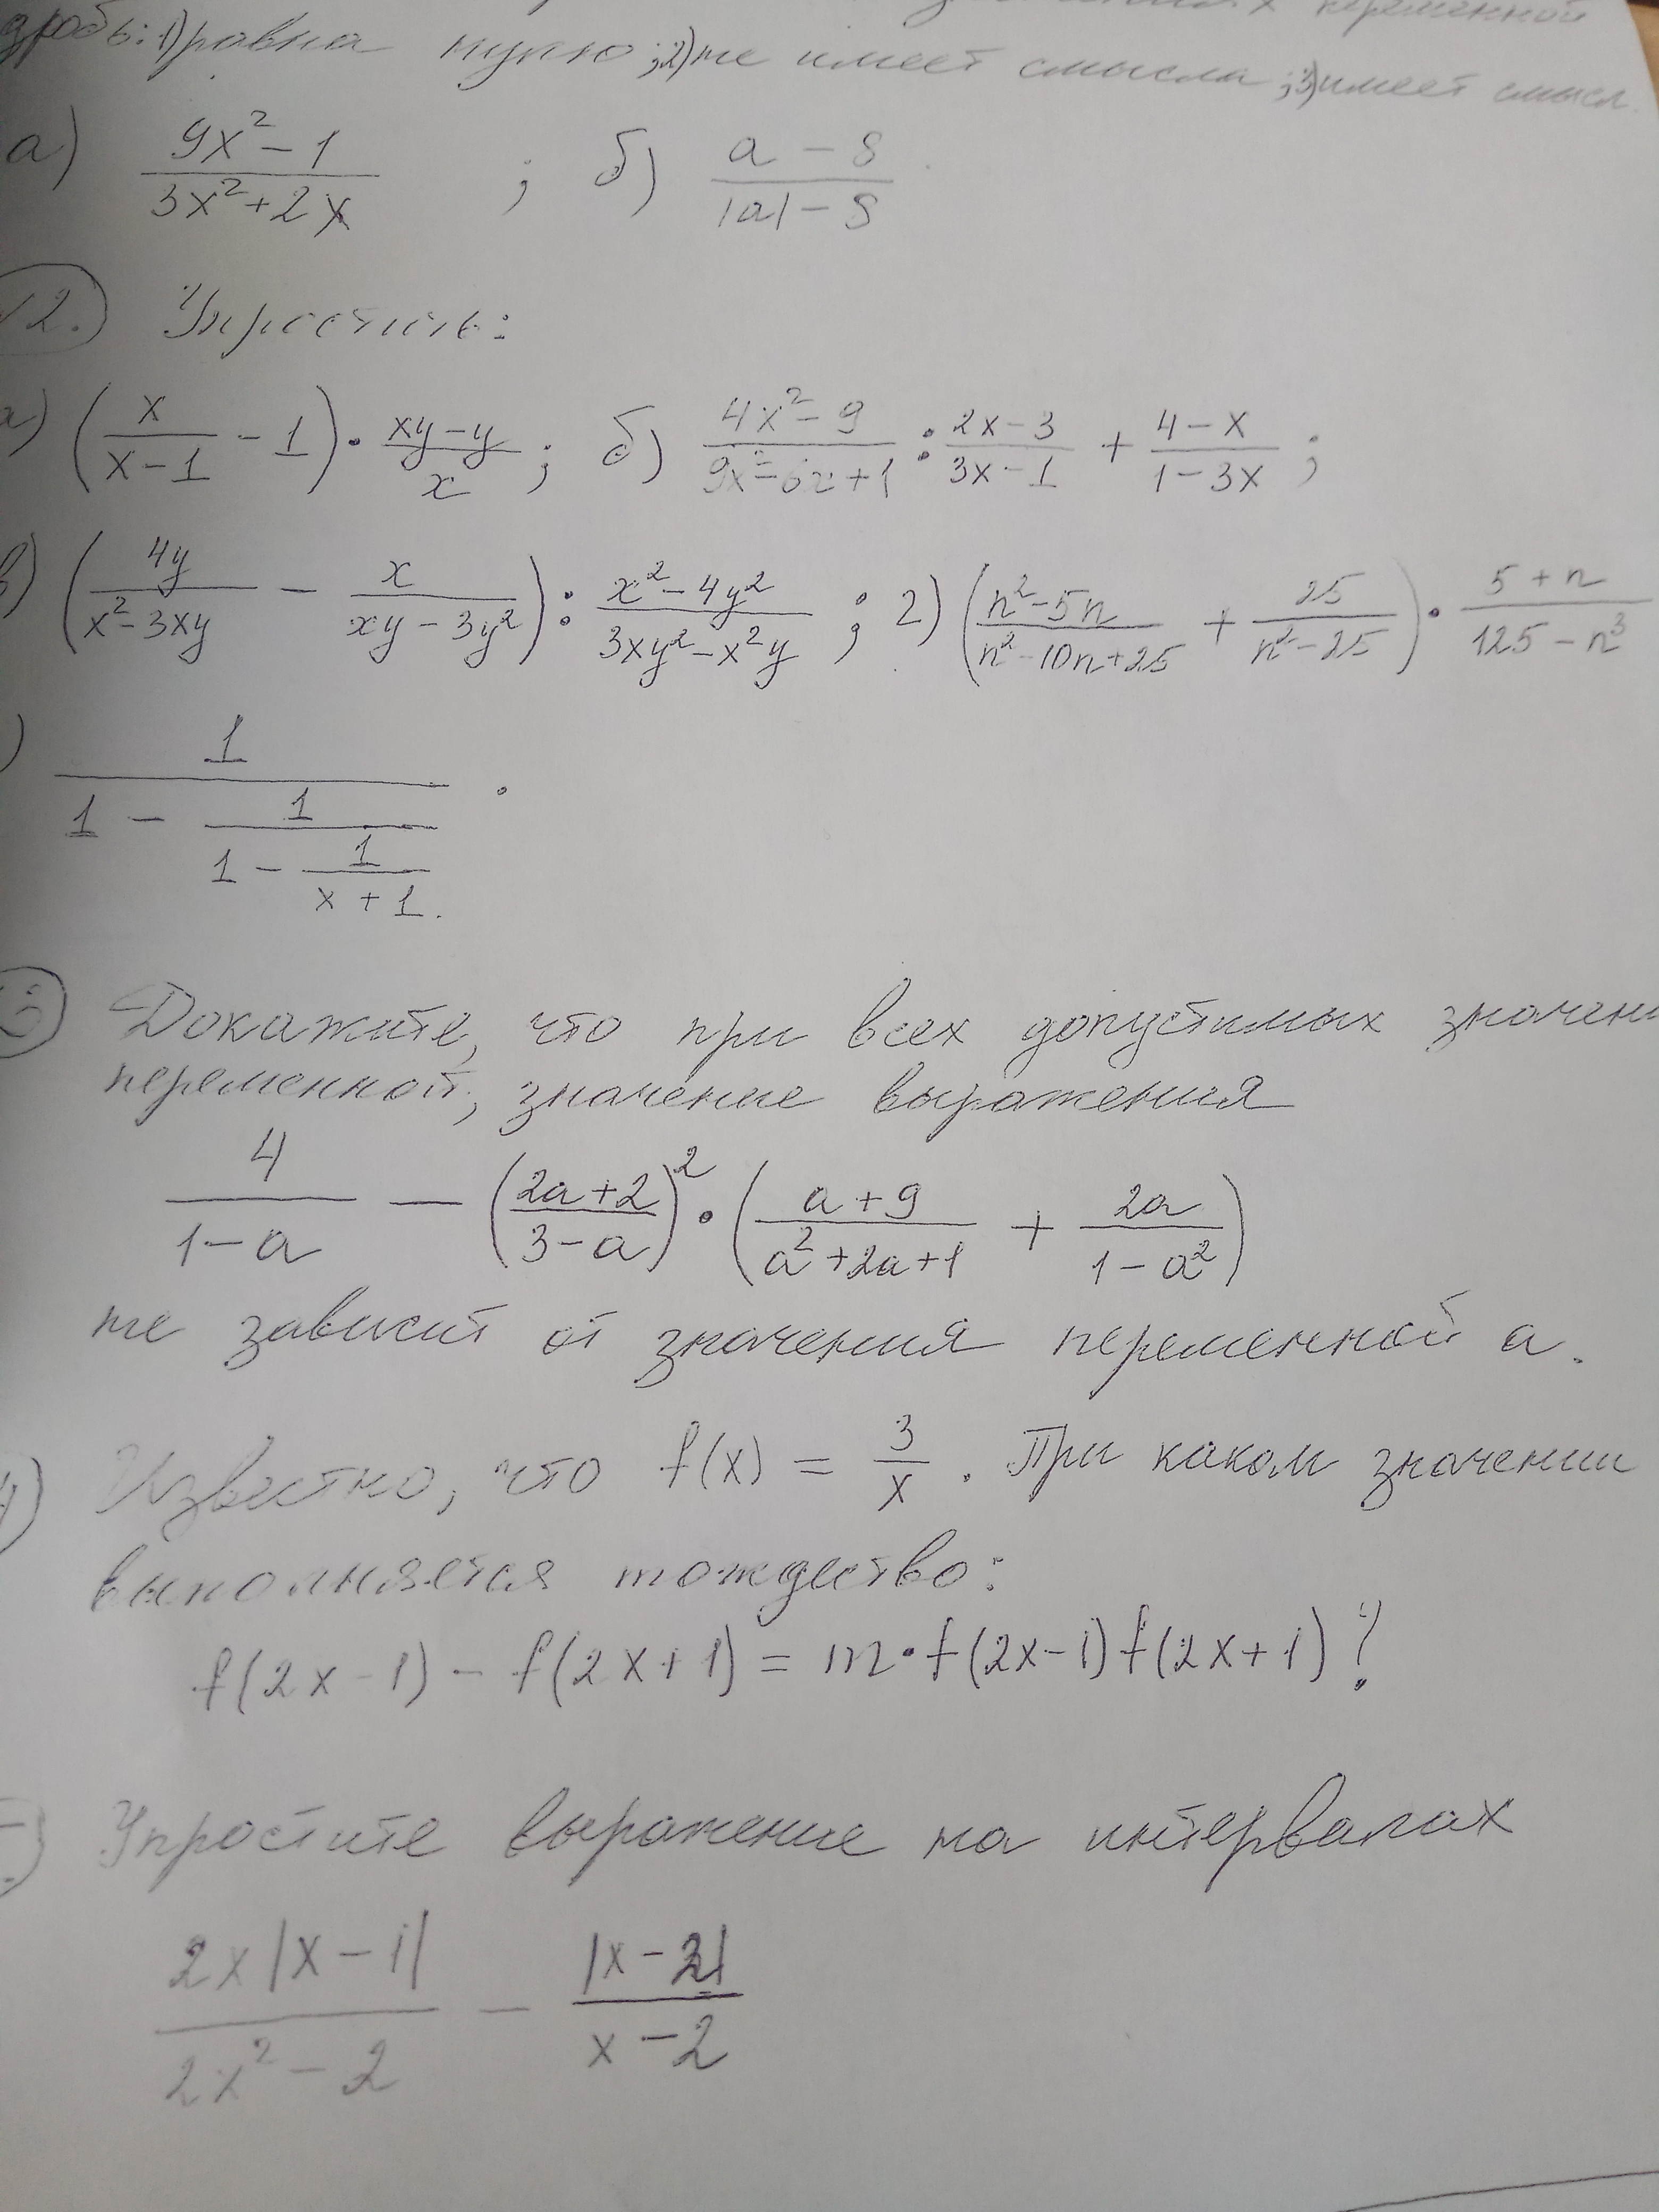 х переменной
дробь: 1) равна нулю; 2) не имеет смысла; 3) имеет смысл.
а) (9x² - 1)/(3x² + 2x) ; б) (a - 8)/(|a| - 8).
2. Упростить:
а) (x/(x - 1) - 1) · (xy - y)/x ; б) (4x² - 9)/(9x² - 6x + 1) : (2x - 3)/(3x - 1) + (4 - x)/(1 - 3x) ;
в) (4y/(x² - 3xy) - x/(xy - 3y²)) : (x² - 4y²)/(3xy² - x²y) ; г) ((n² - 5n)/(n² - 10n + 25) + 25/(n² - 25)) · (5 + n)/(125 - n³)
) 1/(1 - 1/(1 - 1/(x + 1))).
3) Докажите, что при всех допустимых значени
переменной, значение выражения
4/(1 - a) - ((2a + 2)/(3 - a))² · ((a + 9)/(a² + 2a + 1) + 2a/(1 - a²))
не зависит от значения переменной a.
4) Известно, что f(x) = 3/x. При каком значении
выполняется тождество:
f(2x - 1) - f(2x + 1) = m · f(2x - 1) f(2x + 1)?
Упростите выражение на интервалах
2x|x - 1|/(2x² - 2) - |x - 2|/(x - 2)